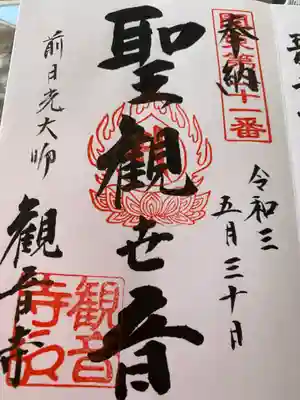 奉納
令和三
五月三十日
聖観世音
前日光大師
観音寺
観音
寺印